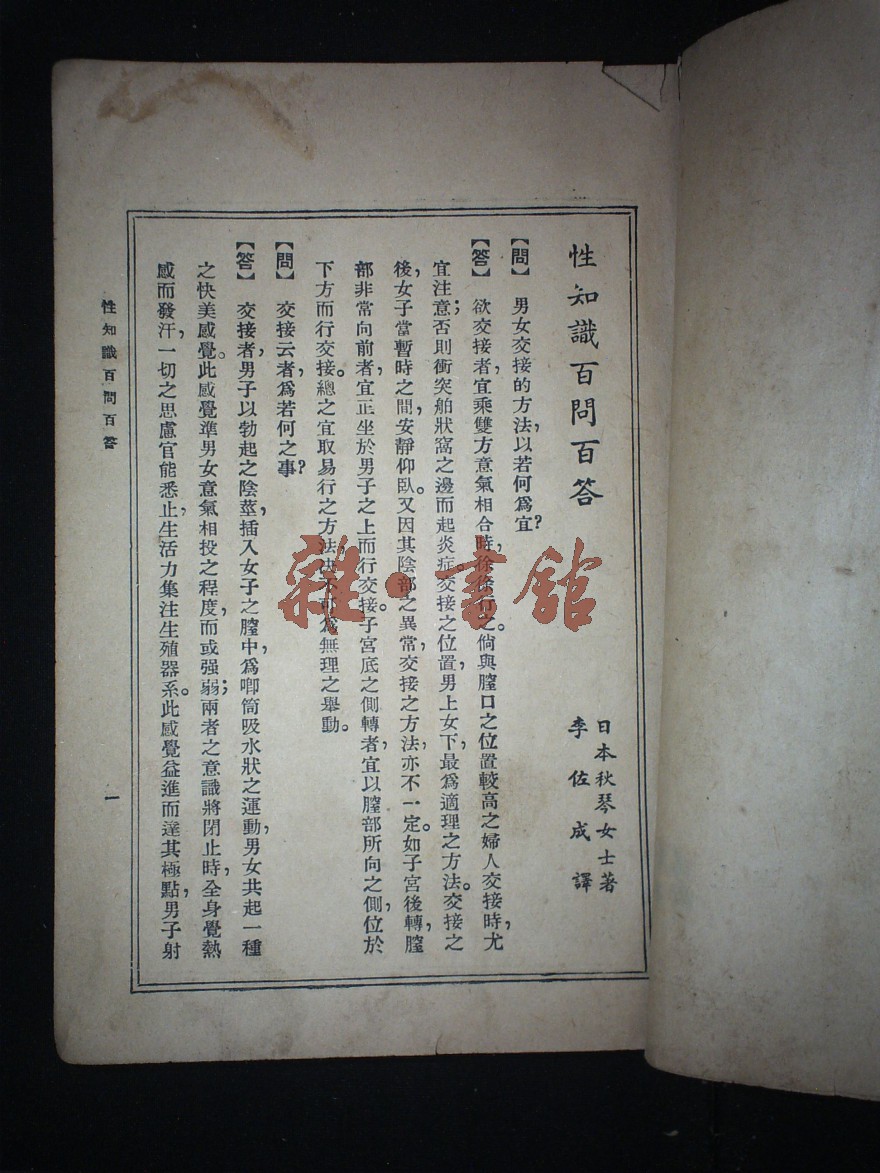 性知識百問百答
日本秋琴女士著
李佐成譯
【問】 男女交接的方法,以若何爲宜?
【答】 欲交接者,宜乘雙方意氣相合時,徐徐行之。倘與膣口之位置較高之婦人交接時,尤
宜注意;否則衝突舶狀窩之邊而起炎症。交接之位置,男上女下,最爲適理之方法。交接之
後,女子當暫時之間,安靜仰臥。又因其陰部之異常,交接之方法,亦不一定。如子宮後轉,膣
部非常向前者,宜正坐於男子之上而行交接。子宮底之側轉者,宜以膣部所向之側,位於
下方而行交接。總之宜取易行之方法,決不可爲無理之舉動。
【問】 交接云者,爲若何之事?
【答】 交接者,男子以勃起之陰莖,插入女子之膣中,爲喞筒吸水狀之運動,男女共起一種
之快美感覺。此感覺準男女意氣相投之程度,而或强弱;兩者之意識將閉止時,全身覺熱
感而發汗,一切之思慮官能悉止,生活力集注生殖器系。此感覺益進而達其極點,男子射
性知識百問百答
一
雜·書館